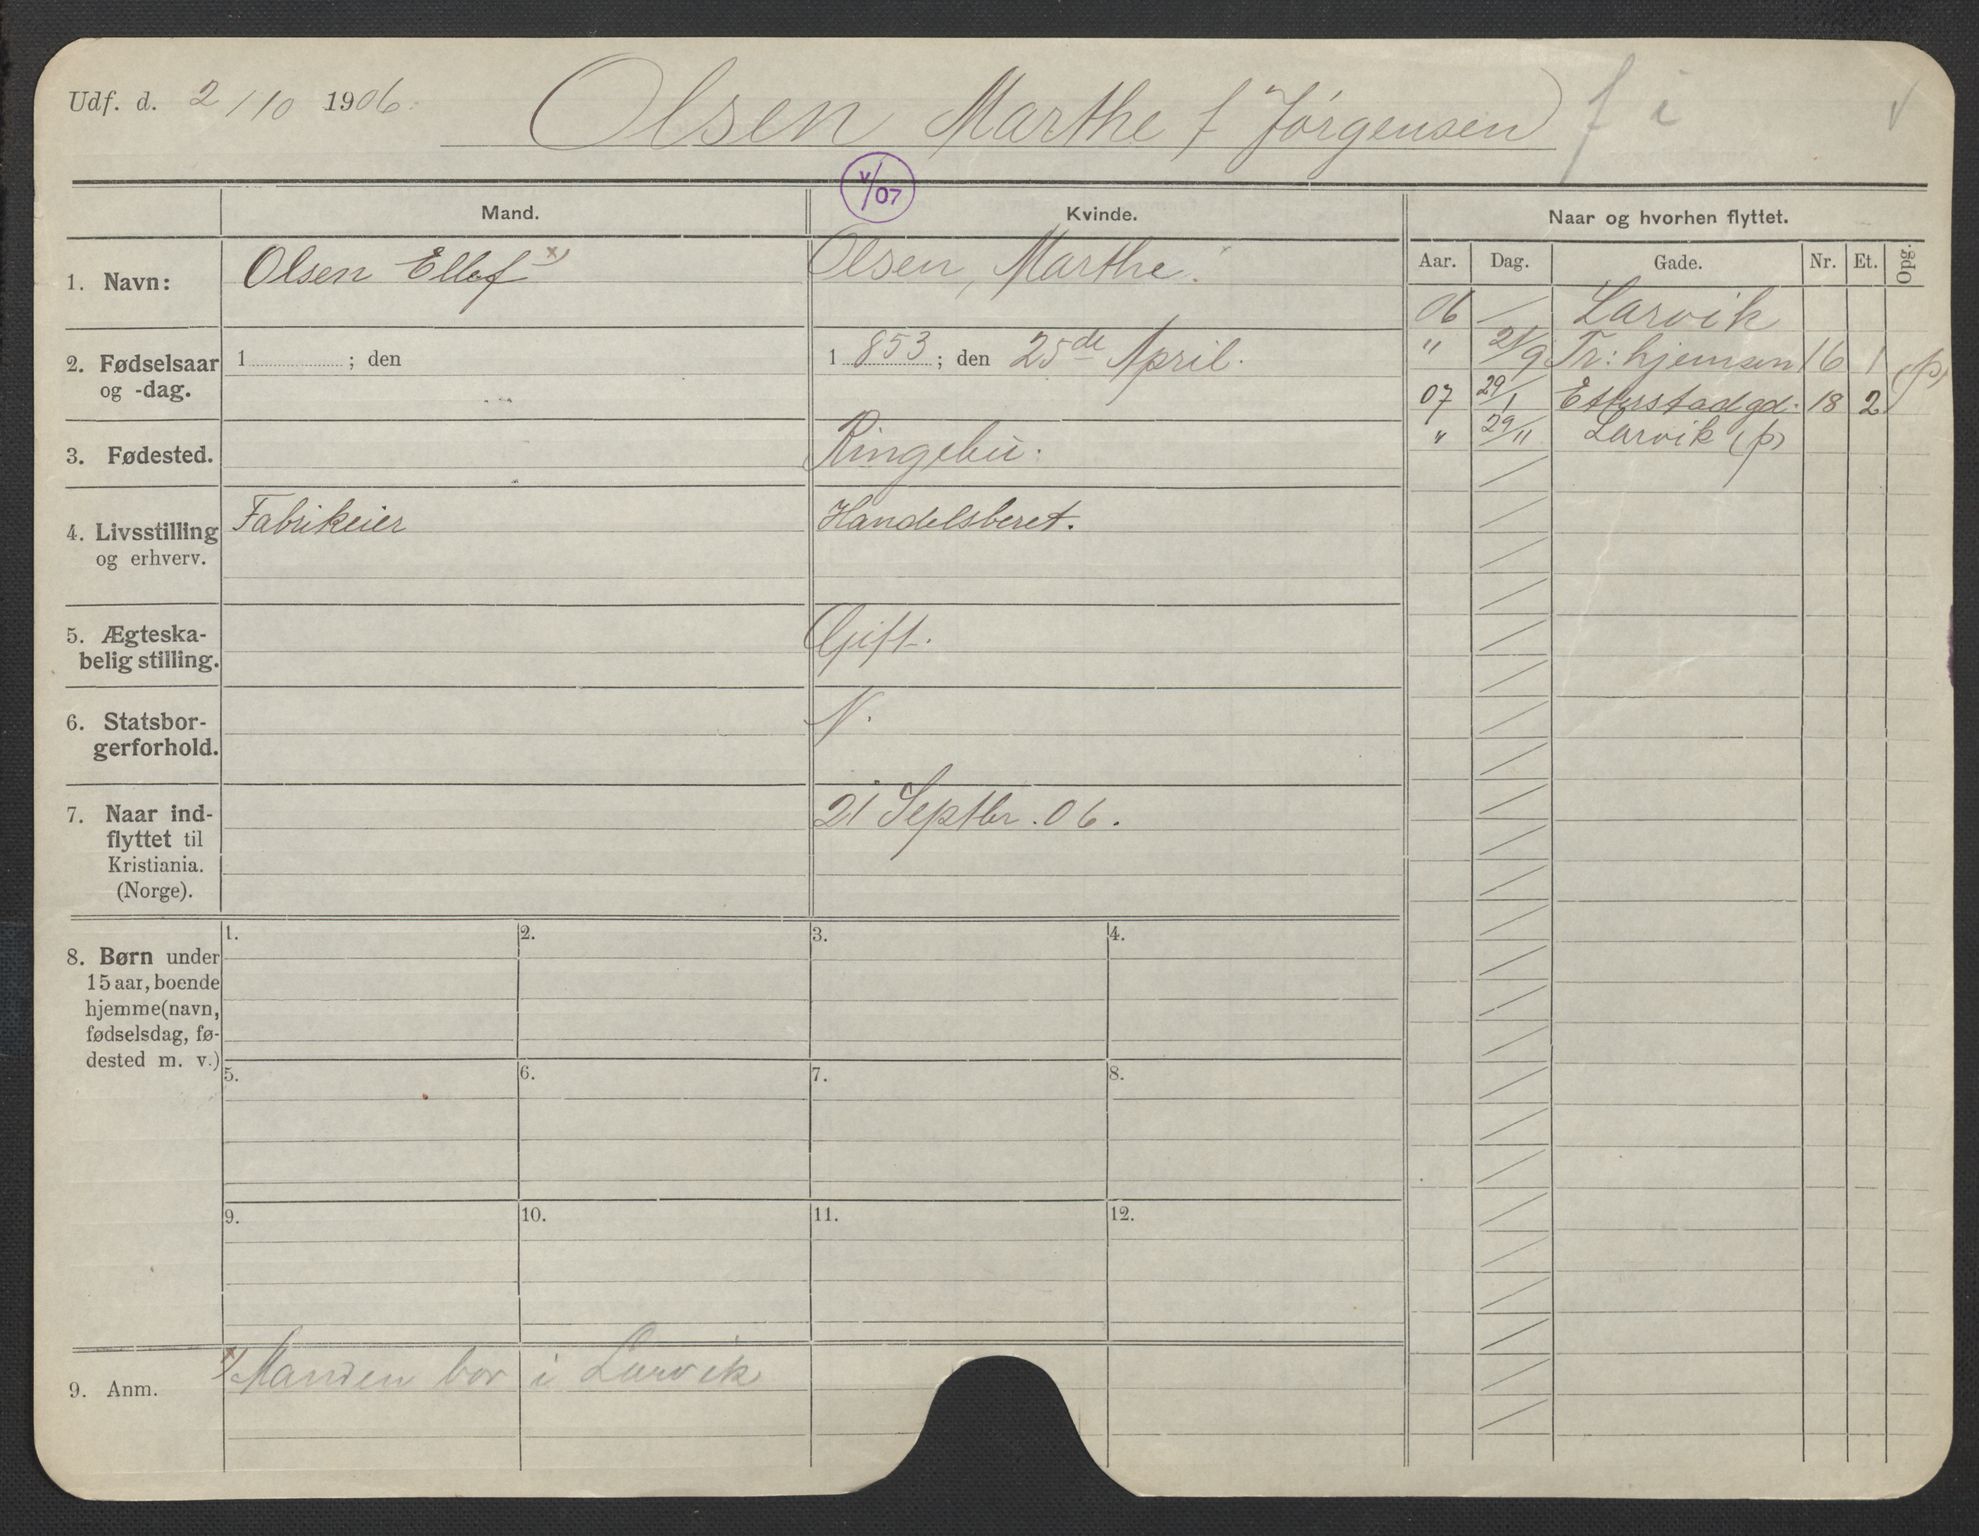 Udf. d. 2/10 1906. Olsen Marthe f Jørgensen f i
v/07
Mand. Kvinde. Naar og hvorhen flyttet.
Aar. Dag. Gade. Nr. Et. Opg.
1. Navn: Olsen Ellef x) Olsen, Marthe.
2. Fødselsaar og -dag. 1 ; den 1 853 ; den 25de April.
3. Fødested. Ringebu.
4. Livsstilling og erhverv. Fabrikeier Handelsberet.
5. Ægteska-
belig stilling. Gift.
6. Statsbor-
gerforhold. N.
7. Naar ind-
flyttet til
Kristiania.
(Norge). 21 Septbr. 06.
06 / Larvik
" 21/9 Tr: hjemsen 16 1 (p)
07 29/1 Etterstadgd. 18 2
" 29/11 Larvik (p)
8. Børn under
15 aar, boende
hjemme (navn,
fødselsdag, fø-
dested m. v.)
1. 2. 3. 4.
5. 6. 7. 8.
9. 10. 11. 12.
9. Anm. x) Manden bor i Larvik